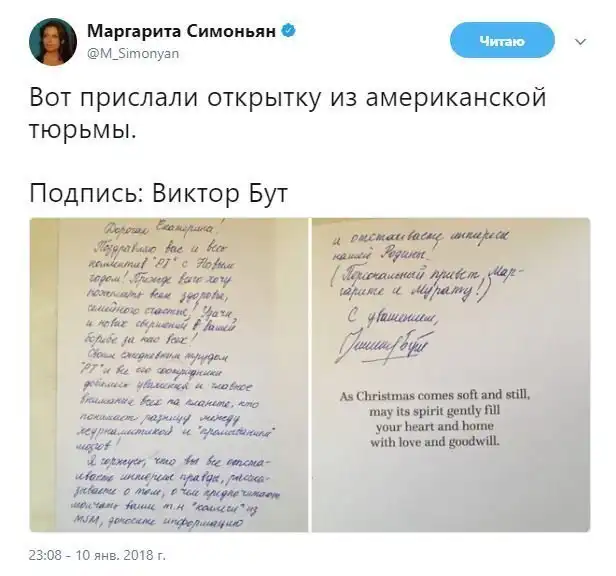 Маргарита Симоньян
@M_Simonyan
Читаю
Вот прислали открытку из американской
тюрьмы.
Подпись: Виктор Бут
Дорогая Екатерина!
Поздравляю вас и весь
коллектив "РТ" с Новым
годом! Прежде всего хочу
пожелать всем здоровья,
семейного счастья! Удачи
и новых свершений в вашей
борьбе за нас всех!
Своим ежедневным трудом
"РТ" и все его сотрудники
добились уважения и главное
внимания всех на планете, кто
понимает разницу между
журналистикой и "промыванием"
мозгов!
Я горжусь, что вы все отста-
иваете интересы правды, расска-
зываете о том, о чем предпочитают
молчать ваши т.н "коллеги" из
MSM, доносите информацию
и отстаиваете интересы
нашей Родины!
(Персональный привет Мар-
гарите и Мурату!)
С уважением,
Бут
As Christmas comes soft and still,
may its spirit gently fill
your heart and home
with love and goodwill.
23:08 - 10 янв. 2018 г.